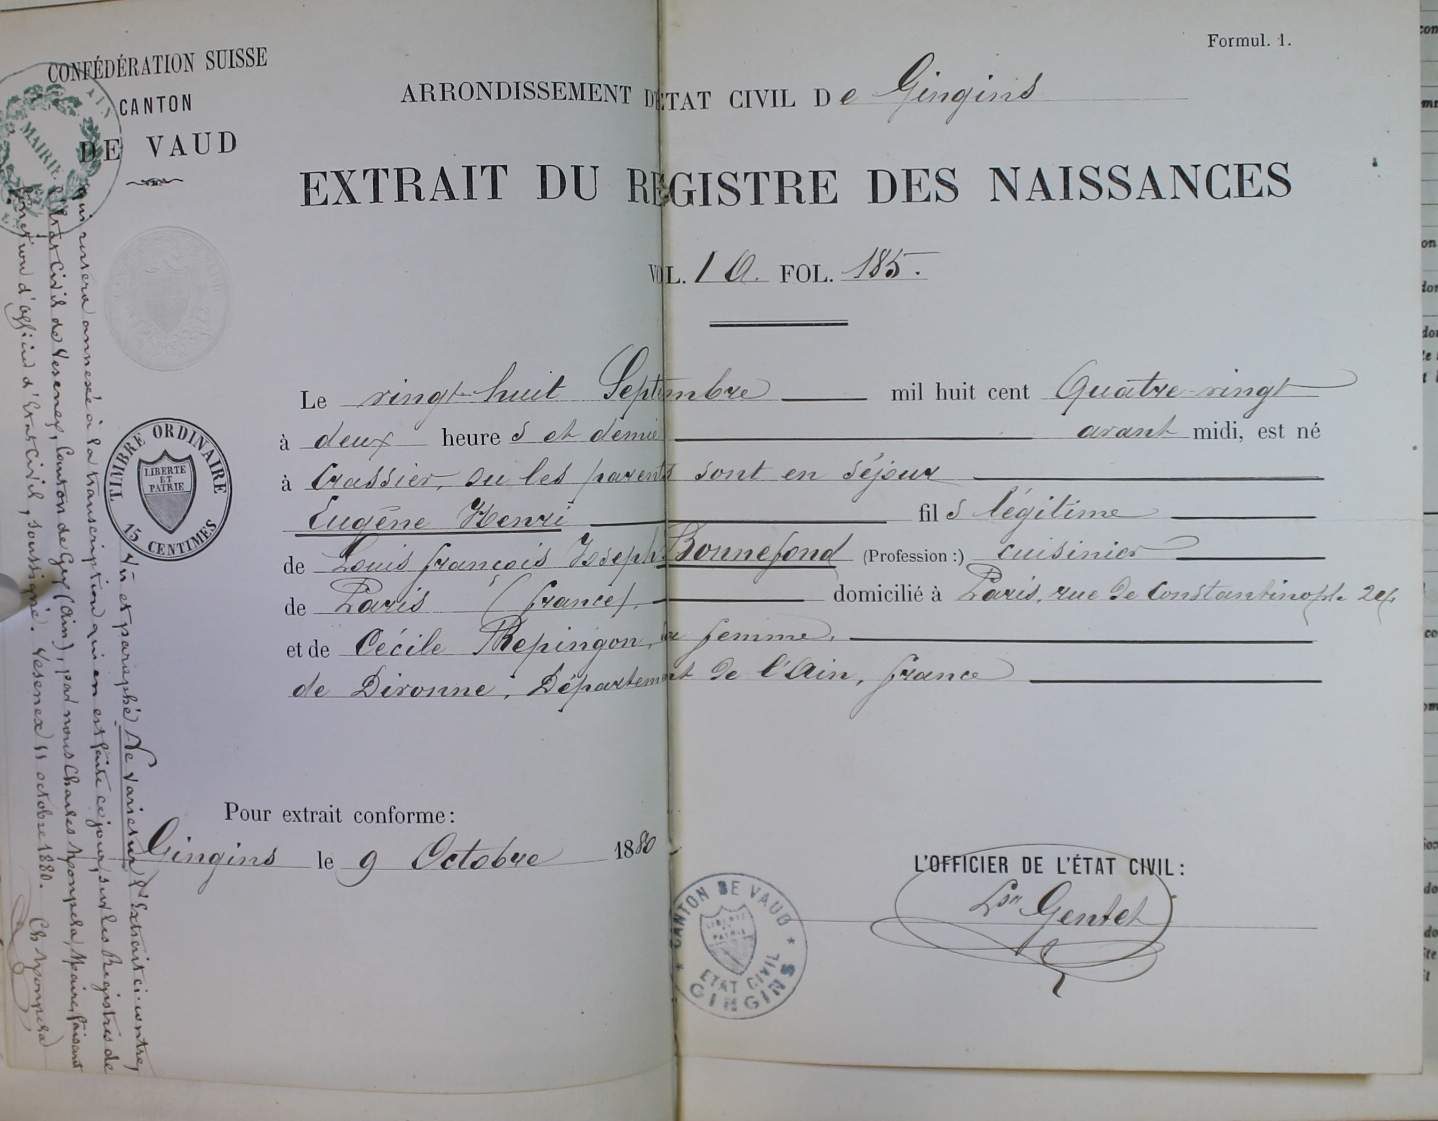 Formul. 1.
CONFÉDÉRATION SUISSE
CANTON
DE VAUD
MAIRIE
ARRONDISSEMENT D'ÉTAT CIVIL De Gingins
EXTRAIT DU REGISTRE DES NAISSANCES
VOL. 1 A. FOL. 185.
Le vingt-huit Septembre mil huit cent Quatre-vingt
à deux heures et demie avant midi, est né
à Crassier, où les parents sont en séjour
Eugène Henri fils légitime
de Louis François Joseph Bonnefond (Profession:) cuisinier
de Paris (France), domicilié à Paris, rue de Constantinople
et de Cécile Repingon, sa femme,
de Divonne, Département de l'Ain, France
TIMBRE ORDINAIRE
LIBERTÉ
ET
PATRIE
15 CENTIMES
Pour extrait conforme:
Gingins le 9 Octobre 1880
L'OFFICIER DE L'ÉTAT CIVIL:
Gentet
CANTON DE VAUD
LIBERTÉ
ET
PATRIE
ETAT CIVIL
GINGINS
Vu et paraphé Ne Varietur l'Extrait ci-contre,
qui restera annexé à la transcription qui en est faite ce jour, sur les Registres de
l'Etat Civil de Vesenex, Canton de Gex (Ain), par nous Charles Mompela, Maire, faisant
fonction d'officier d'Etat Civil, soussigné. Vesenex 11 octobre 1880. Ch Mompela